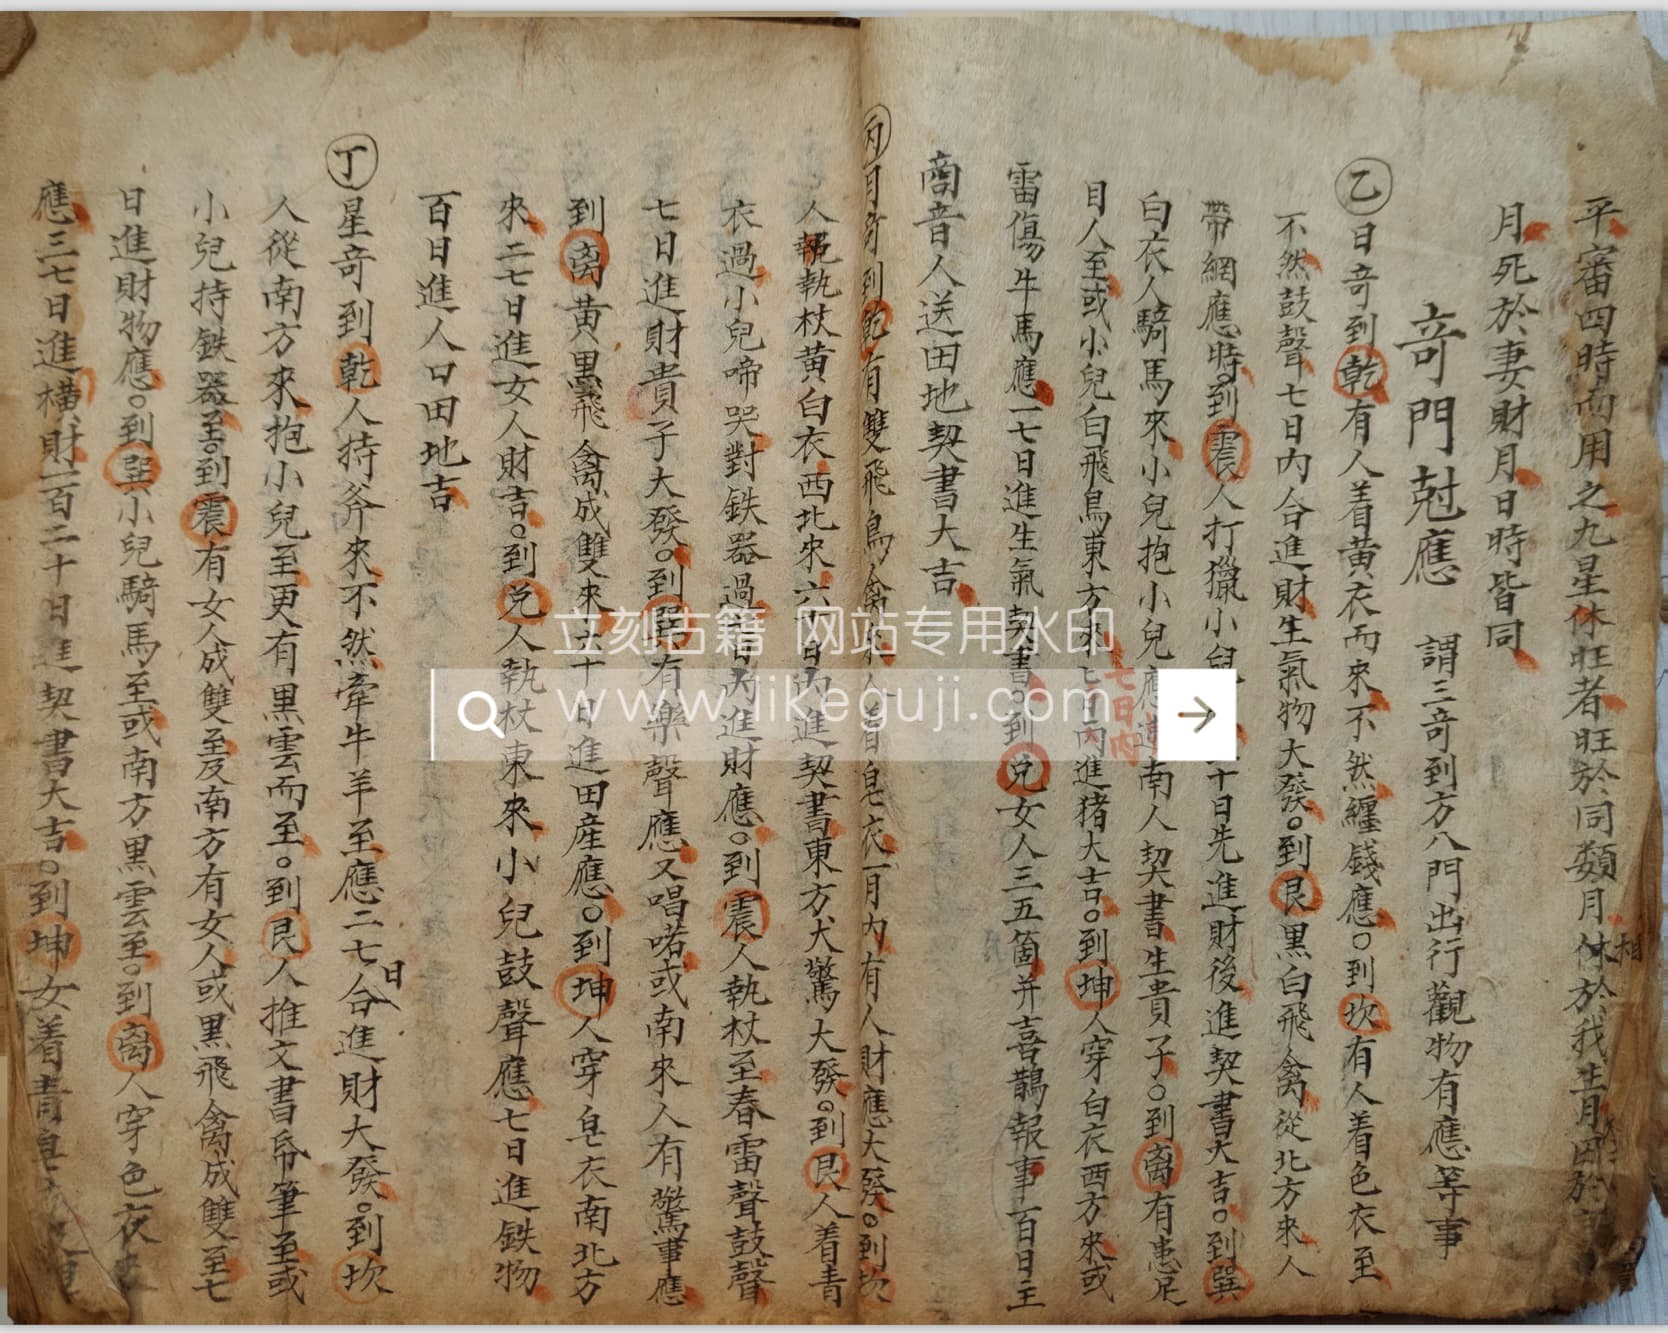 平審四時而用之九星休旺者旺於同類月休於我生月囚於
相
月死於妻財月日時皆同
奇門尅應 謂三奇到方八門出行觀物有應等事
乙日奇到乾有人着黃衣而來不然纏錢應○到坎有人着色衣至
不然鼓聲七日內合進財生氣物大發○到艮黑白飛禽從北方來人
帶網應時到震人打獵小兒十日先進財後進契書大吉○到巽
白衣人騎馬來小兒抱小兒應進南人契書生貴子○到离有患足
七日內
目人至或小兒白飛鳥東方來七日內進猪大吉○到坤人穿白衣西方來或
雷傷牛馬應一七日進生氣契書○到兌女人三五箇并喜鵲報事百日主
商音人送田地契書大吉
丙月奇到乾有雙飛鳥禽來人着皂衣一月內有人財應大發○到坎
人執杖黃白衣西北來六十日內進契書東方犬驚大發○到艮人着青
衣過小兒啼哭對鉄器過七日內進財應○到震人執杖至春雷聲鼓聲
七日進財貴子大發○到巽有樂聲應又唱喏或南來人有驚事應
到离黃黑飛禽成雙來六十日進田産應○到坤人穿皂衣南北方
來二七日進女人財吉○到兌人執杖東來小兒鼓聲應七日進鉄物
百日進人口田地吉
丁星奇到乾人持斧來不然牽牛羊至應二七日合進財大發○到坎
人從南方來抱小兒至更有黑雲而至○到艮人推文書帋筆至或
小兒持鉄器至○到震有女人成雙至及南方有女人或黑飛禽成雙至七
日進財物應○到巽小兒騎馬至或南方黑雲至○到离人穿色衣來
應三七日進橫財一百二十日進契書大吉○到坤女着青皂衣
立刻古籍 网站专用水印
www.jikeguji.com